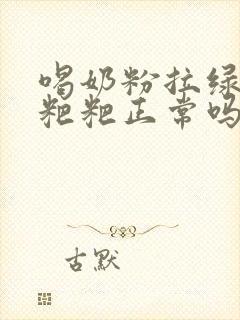 喝奶粉拉绿
粑粑正常吗
古默